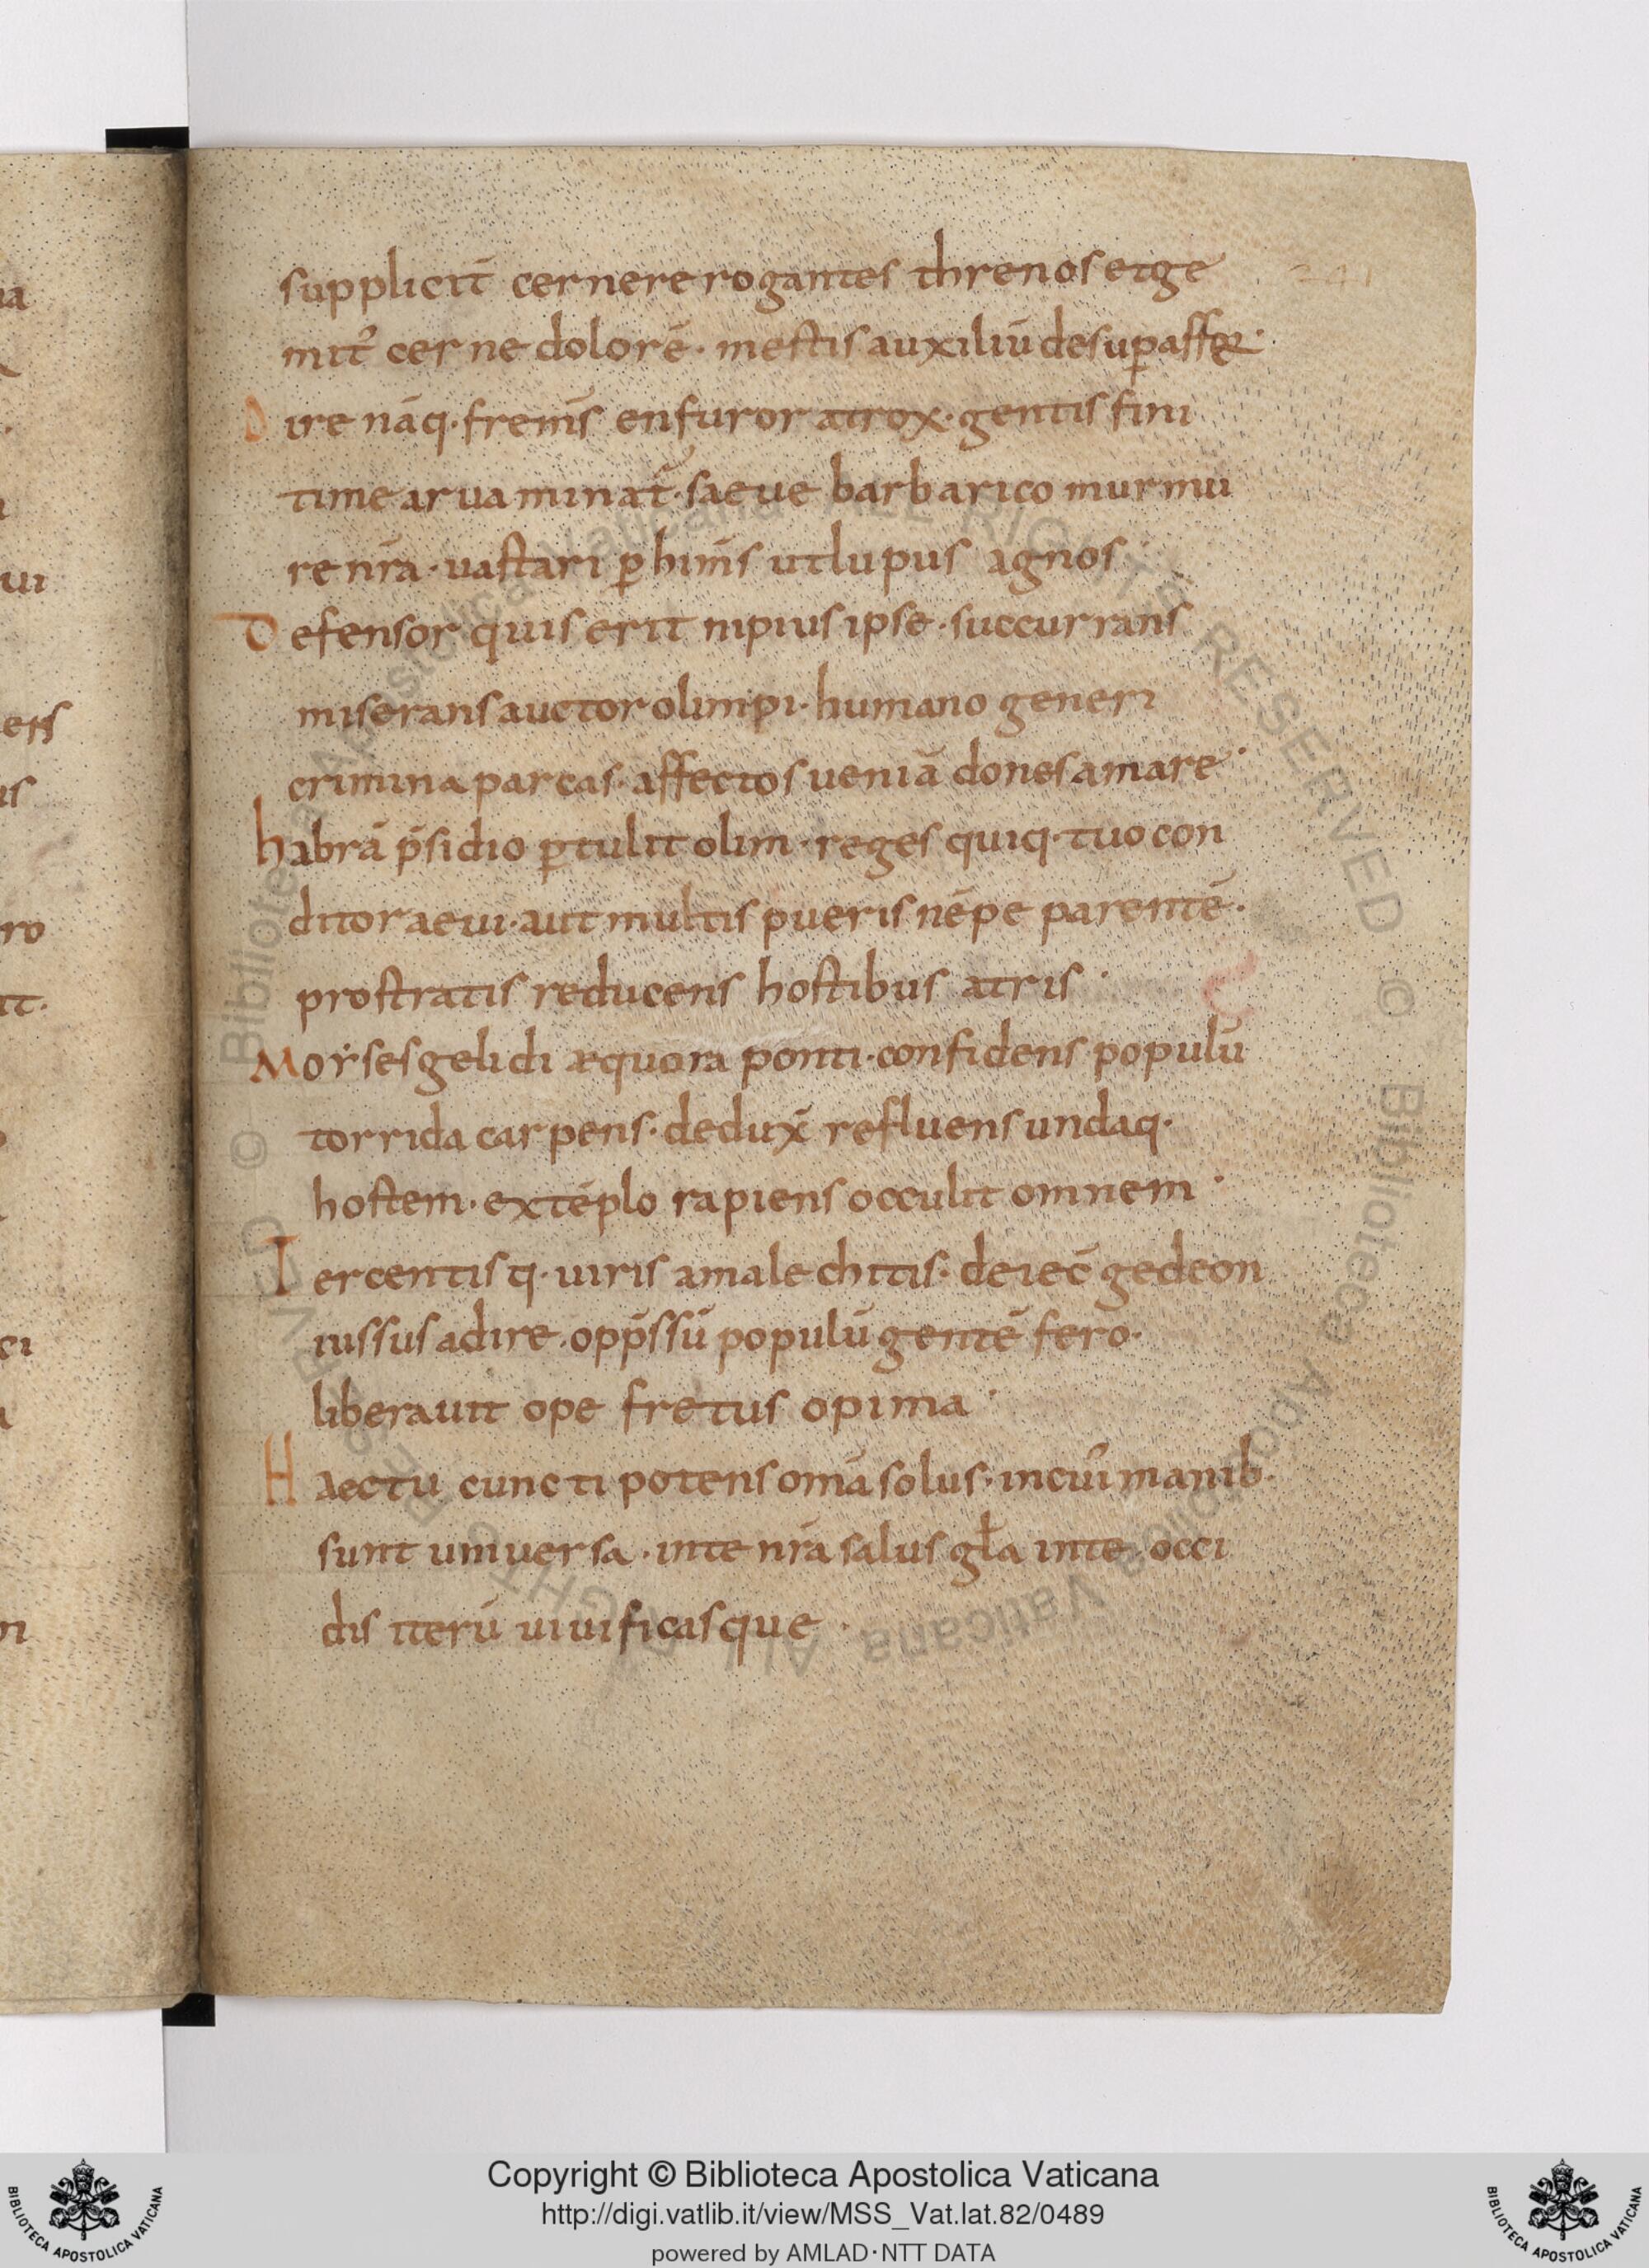 supplicit̄ cernere rogantes threnos et ge
mit᷒ cerne dolorē· mestis auxiliū desuꝑ affer·
Dire nāq· fremis en furor atrox· gentis fini
time arua minat̄· saeue barbarico murmu
re nr̄a· uastari ꝑ himis ut lupus agnos·
Defensor quis erit ni pius ipse· succurrans
miserans auctor olimpi· humano generi
crimina parcas· affectos ueniā dones amare·
habrā p̄sidio ꝑtulit olim· reges quiq· tuo con
ditor aeui· aut multis pueris nēpe parentē·
prostratis reducens hostibus atris·
Moẏses gelidi æquora ponti· confidens populū
torrida carpens· dedux̄ refluens undaq·
hostem· extēplo rapiens occulit omnem·
Tercentis q· uiris amalechitis· deiec̄ gedeon
iussus adire· opp̄ssū populū gentē fero·
liberauit ope fretus opima·
Haec tu cuncti potens om̄a solus· in cui᷒ manib·
sunt uniuersa· in te nr̄a salus gl̄a in te· occi
dis iterū uiuificasque·
241
ua
ui
ers
us
ro
it·
ci
Copyright © Biblioteca Apostolica Vaticana
http://digi.vatlib.it/view/MSS_Vat.lat.82/0489
powered by AMLAD·NTT DATA
BIBLIOTECA APOSTOLICA VATICANA
BIBLIOTECA APOSTOLICA VATICANA
© Biblioteca Apostolica Vaticana ALL RIGHTS RESERVED © Biblioteca Apostolica Vaticana ALL RIGHTS RESERVED